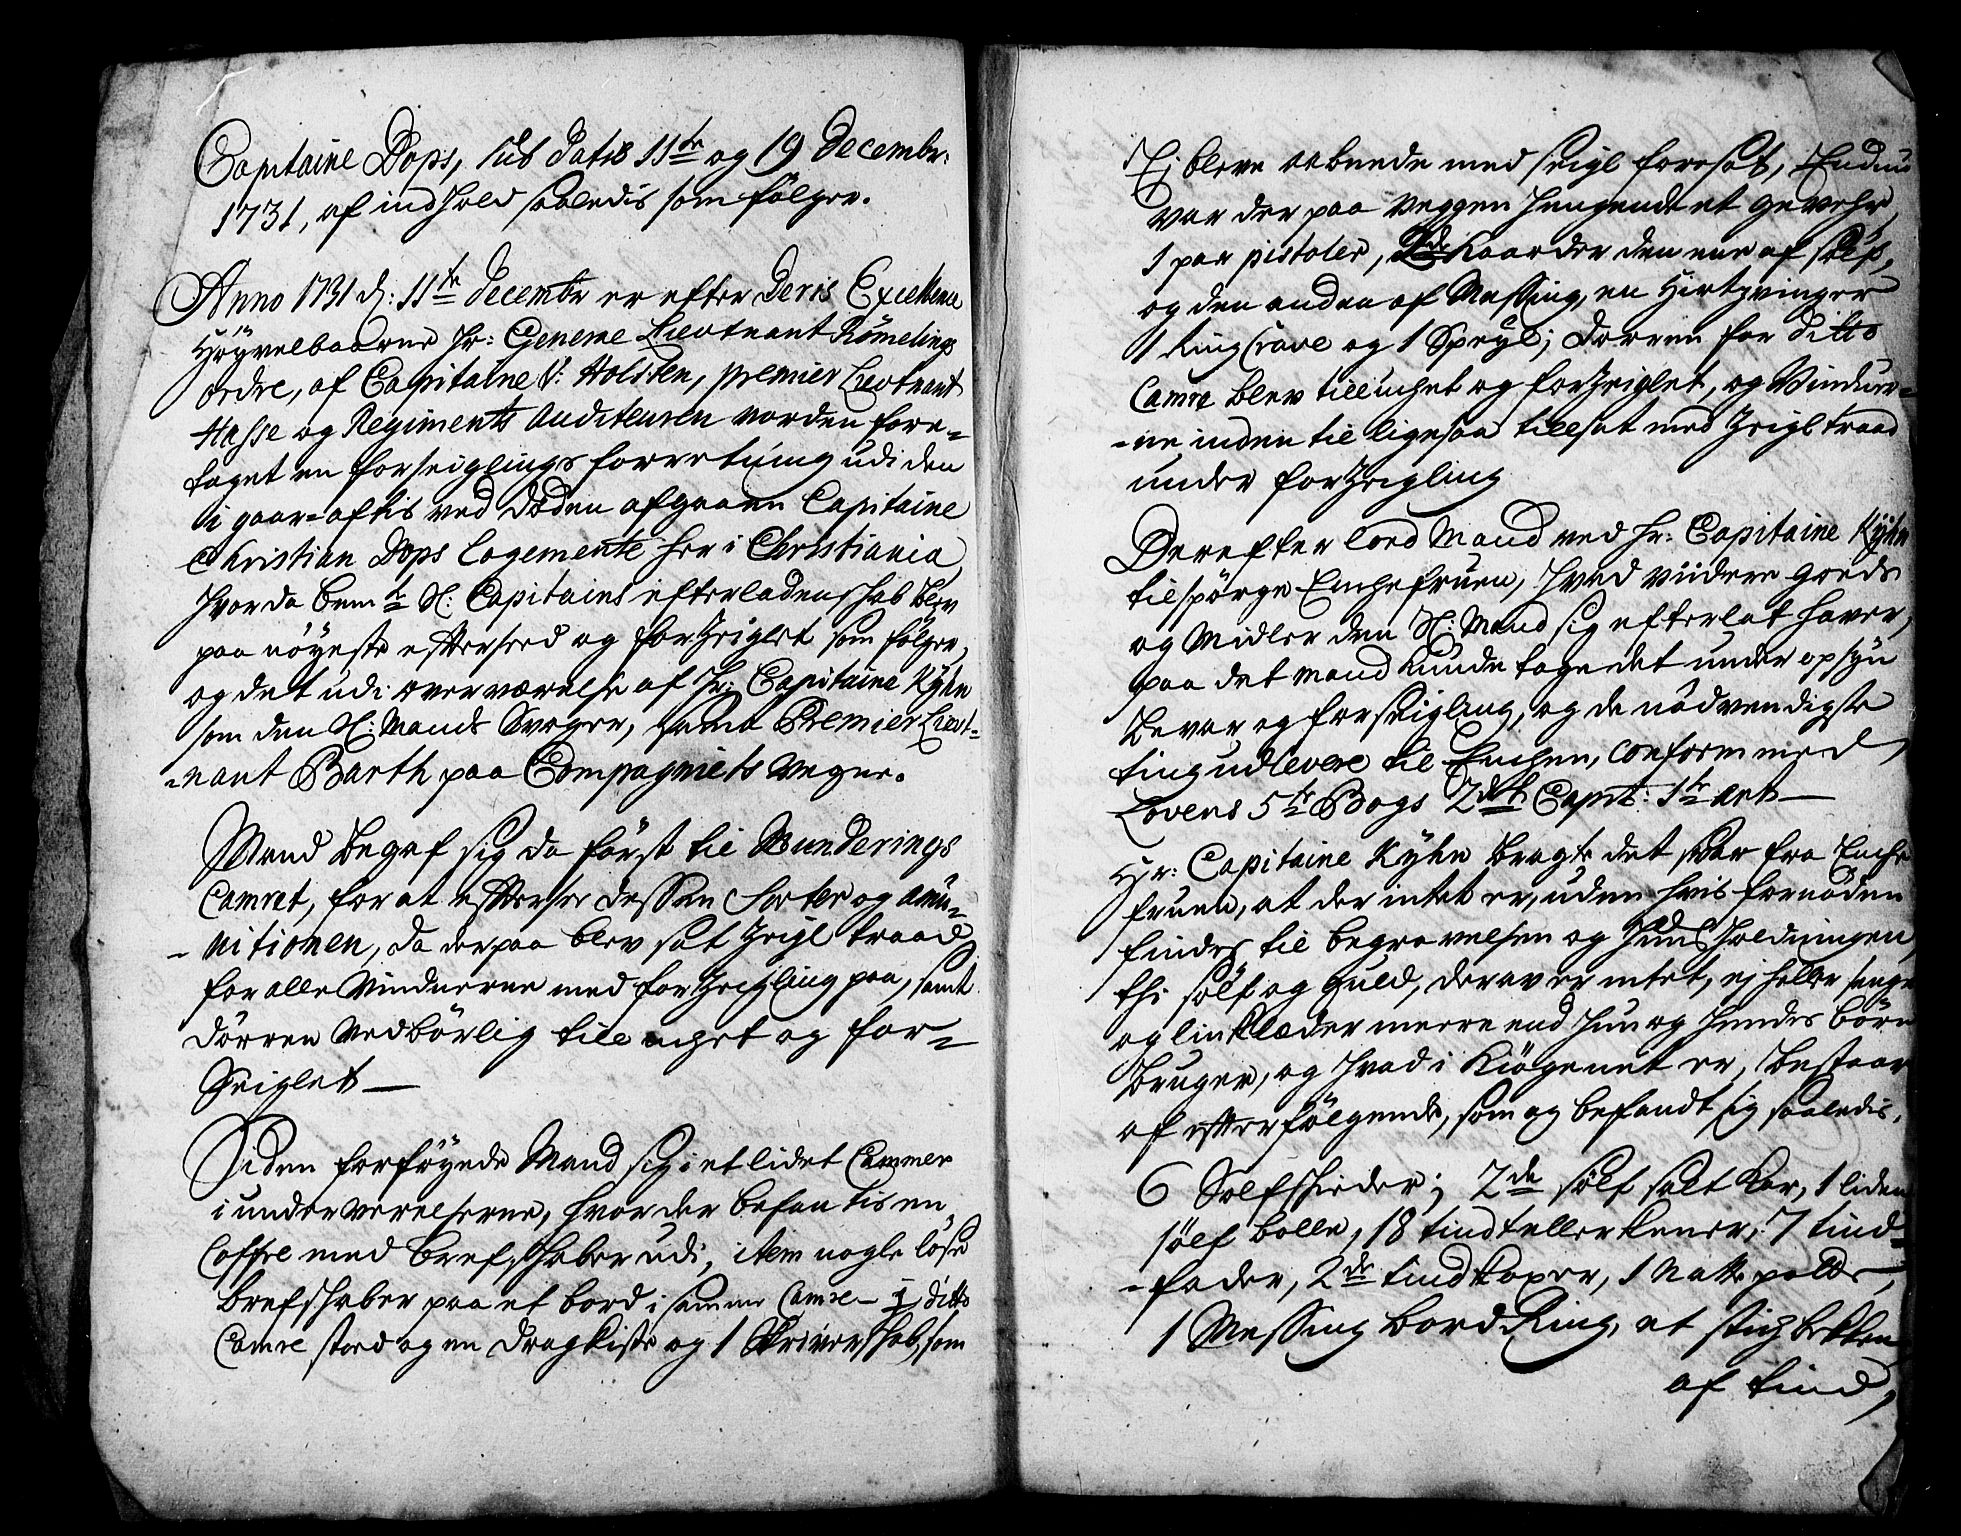 Capitaine Dops, sub Datis 11te og 19 Decembr:
1731, af indhold saaledis som fölger.
Anno 1731 d: 11te Decembr er efter Deris Excellence
Höyvelbaarne Hr: General Lieutnant Römelings
ordre, af Capitaine V: Holsten, premier Lieutnant
Hasse og Regiments Auditeuren vorden fore-
taget en forseiglings forretning udi den
i gaar-aftis ved Döden afgaaen Capitaine
Christian Dops Logemente her i Christiania,
hvor da bemte Sl: Capitains efterladenskab blev
paa nöyeste efterseed og forzeiglet som fölger,
og det udi overværelse af Hr: Capitaine Kyhn
som den Sl: Mands Svoger, samt Premier Lieut-
-nant Barth paa Compagniets vegne.
Mand begaf sig da först til Munderings
Camret, for at efftersee dessen Sorter og amu-
-nitionen, da derpaa blev sat Zeigl traad
for alle Vinduerne med forzeigling paa, samt
dörren vedbörlig tillucket og for-
Seiglet—
Siden forföyede Mand sig i et lidet Cammer
i underverelserne, hvor der befantis en
Coffre med brefskaber udi, item nogle löse
brefskaber paa et bord i samme Camre — i ditto
Camre stoed og en Dragkiste og 1 Skriverskab, som
Ej bleve aabnede med seigl foresat, Endnu
var der paa veggen hengende et gevehr,
1 par pistoler, 2de Kaarder den ene af sölf,
og den anden af Messing, en Hirtzvinger
1 Ringkrave og 1 Speyl; Dorren for ditto
Camre blev tillucket og forzeiglet, og Vinduer-
-ne inden til ligesaa tillsat med Zeigl traad
under forzeigling
Derefter loed Mand ved Hr: Capitaine Kyhn
tilspörge Enckefruen, hvad viidere goeds
og Midler den Sl: Mand sig efterlat haver,
paa det mand kunde tage det under opsyn
bevar og forseigling, og de nödvendigste
ting udlevere til Enchen, conform med
Lovens 5te Bogs 2det Capit: 1te Art—
Hr: Capitaine Kyhn bragte det svar fra Encke
fruen, at der intet er, uden hvis fornöden
findes til begravelsen og huusholdningen,
thi sölf og Guld, derav er intet, ej heller senge
og linklæder meere end hun og hendes börn
bruger, og hvad i Kiögenet er, bestaar
af efterfölgende, som og befandt sig saaledis.
6 Sölfskieder; 2de sölf salt Kar, 1 liden
sölf bolle, 18 tindtellerkener, 7 tind-
-fader, 2de tindkoper, 1 Natte potte,
1 Messing bord Ring, et stickbekken
af tind,